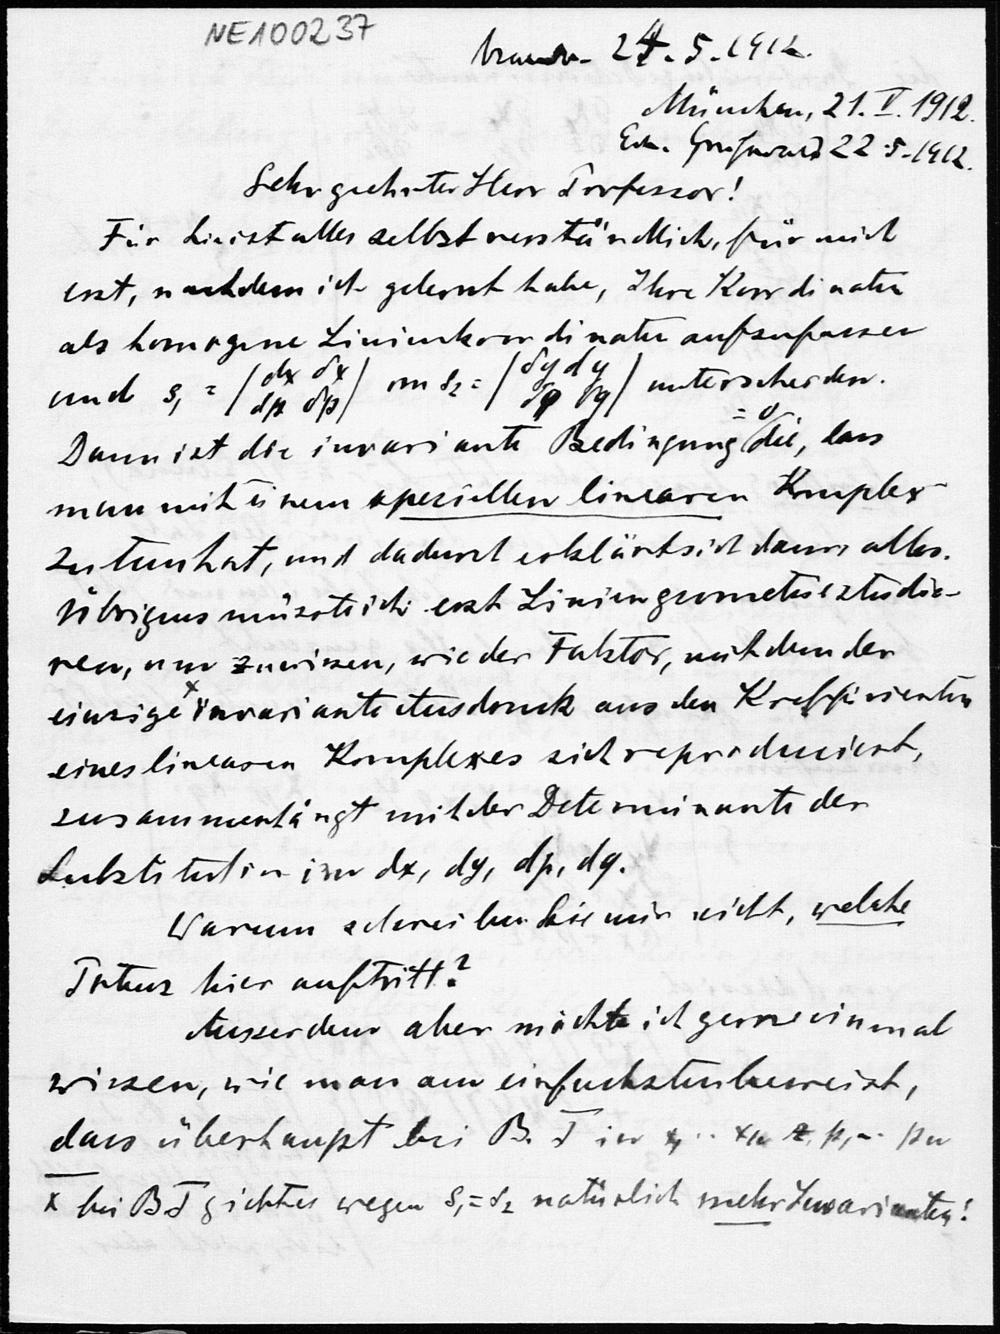 NE100237
24.5.1912.
München, 21. V. 1912.
22.5.1912.
Sehr geehrter Herr Professor!
Für Sie ist alles selbstverständlich, für mich
erst, nachdem ich gelernt habe, Ihre Koordinaten
als homogene Linienkoordinaten aufzufassen
und S₁ = |dx δx| von S₂ = |δy dy| unterscheiden.
|dp δp| |δq dq|
Dann ist die invariante Bedingung = 0 die, dass
man mit einem speziellen linearen Komplex
zu tun hat, und dadurch erklärt sich dann alles.
Übrigens müsste ich erst Liniengeometrie studie-
ren, um zu wissen, wie der Faktor, mit dem der
einzige x invariante Ausdruck aus den Koeffizienten
eines linearen Komplexes sich reproduciert,
zusammenhängt mit der Determinante der
Substitution in dx, dy, dp, dq.
Warum schreiben Sie mir nicht, welche
Potenz hier auftritt?
Ausserdem aber möchte ich gerne einmal
wissen, wie man am einfachsten beweist,
dass überhaupt bei B. T in x₁ ·· xₙ z, p₁ ·· pₙ
x bei B T gibt es wegen S₁ = S₂ natürlich mehr Invarianten!